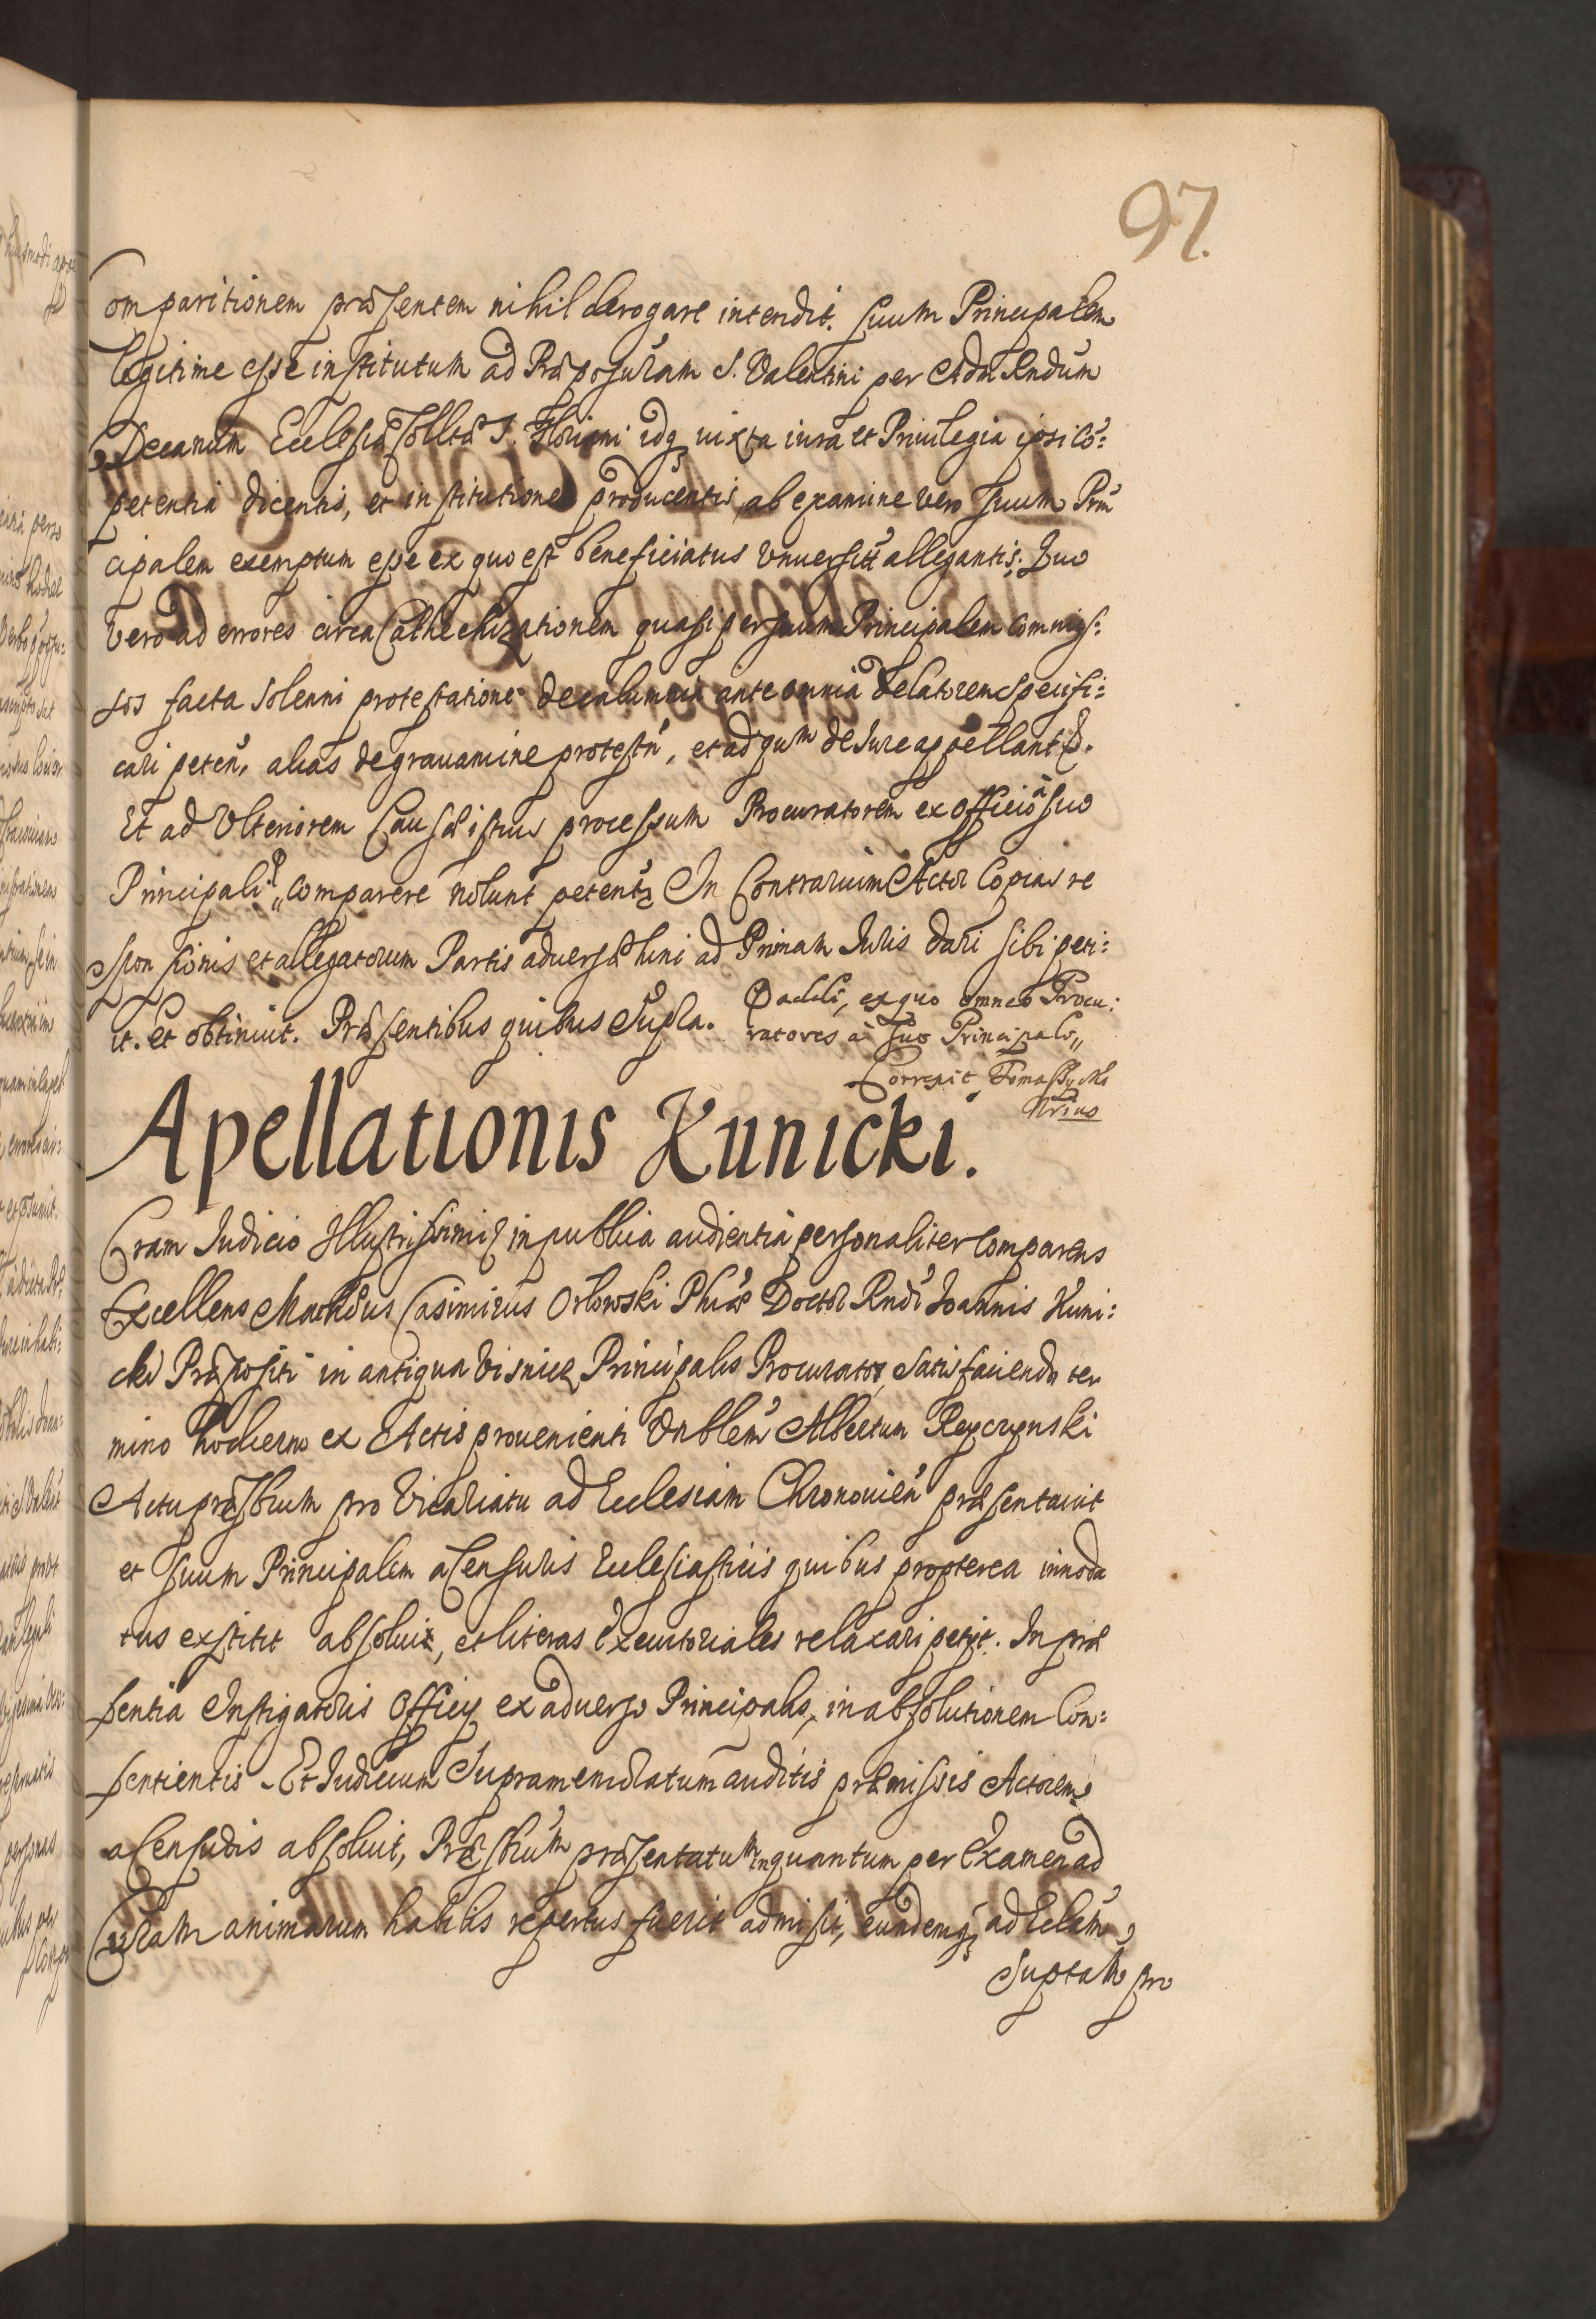 97.
Comparitionem præsentem nihil derogare intendit. Suum Principalem
legitime esse institutum ad Præposuram S. Valentini per Adm Rndum
Decanum Ecclesiæ Colltæ S. Floriani idq iuxta iura et Priuilegia ipsi cõ:
petentia dicentis, et institutionẽ producentis, ab examine vero suum Prin
cipalem exemptum esse ex quo est beneficiatus Vniuersitt allegantis; Quo
vero ad errores circa Cathechizationem quasi per suum Principalem commis:
sos facta solenni protestatione de calumnia ante omnia delatorem specifi:
cari peteñ, alias de grauamine protestñ, et ad qum de Iure appellantis.
Et ad Vlteriorem Causæ istius processum Procuratorem ex officio à suo
Principali „ comparere nolunt petentis In Contrarium Actor Copias re
sponsionis et allegatorum Partis aduersæ hini ad Primam Iuris dari sibi peti:
it. Et obtinuit. Præsentibus quibus Supra.
addi, ex quo omnes Procu:
ratores à suo Principali „
Correxit Tomaszycki
Nrius
Apellationis Kunicki.
Coram Iudicio Illustrissimi in publica audientia personaliter Comparens
Excellens Mathæus Casimirus Orłowski Phiæ Doctor Rndi Ioannis Kuni:
cki Præpositi in antiqua Visnicz Principalis Procurator, Satisfaciendo ter
mino hodierno ex Actis prouenienti Vnblem Albertum Reyczynski
Actu præsbrum pro Vicariatu ad Ecclesiam Chronouień præsentauit
et suum Principalem a Censuris Ecclesiasticis quibus propterea innoda
tus exstitit absolui, et literas Executoriales relaxari petijt. In præ
sentia Instigatoris Officij ex aduerso Principalis, in absolutionem Con:
sentientis. Et Iudicium Supramemoratum auditis præmissis Actorem
a Censuris absoluit, Præsbrum præsentatum in quantum per Examen ad
Curam animarum habilis repertus fuerit admisit, eundemq ad Ecclam
Suptam pro